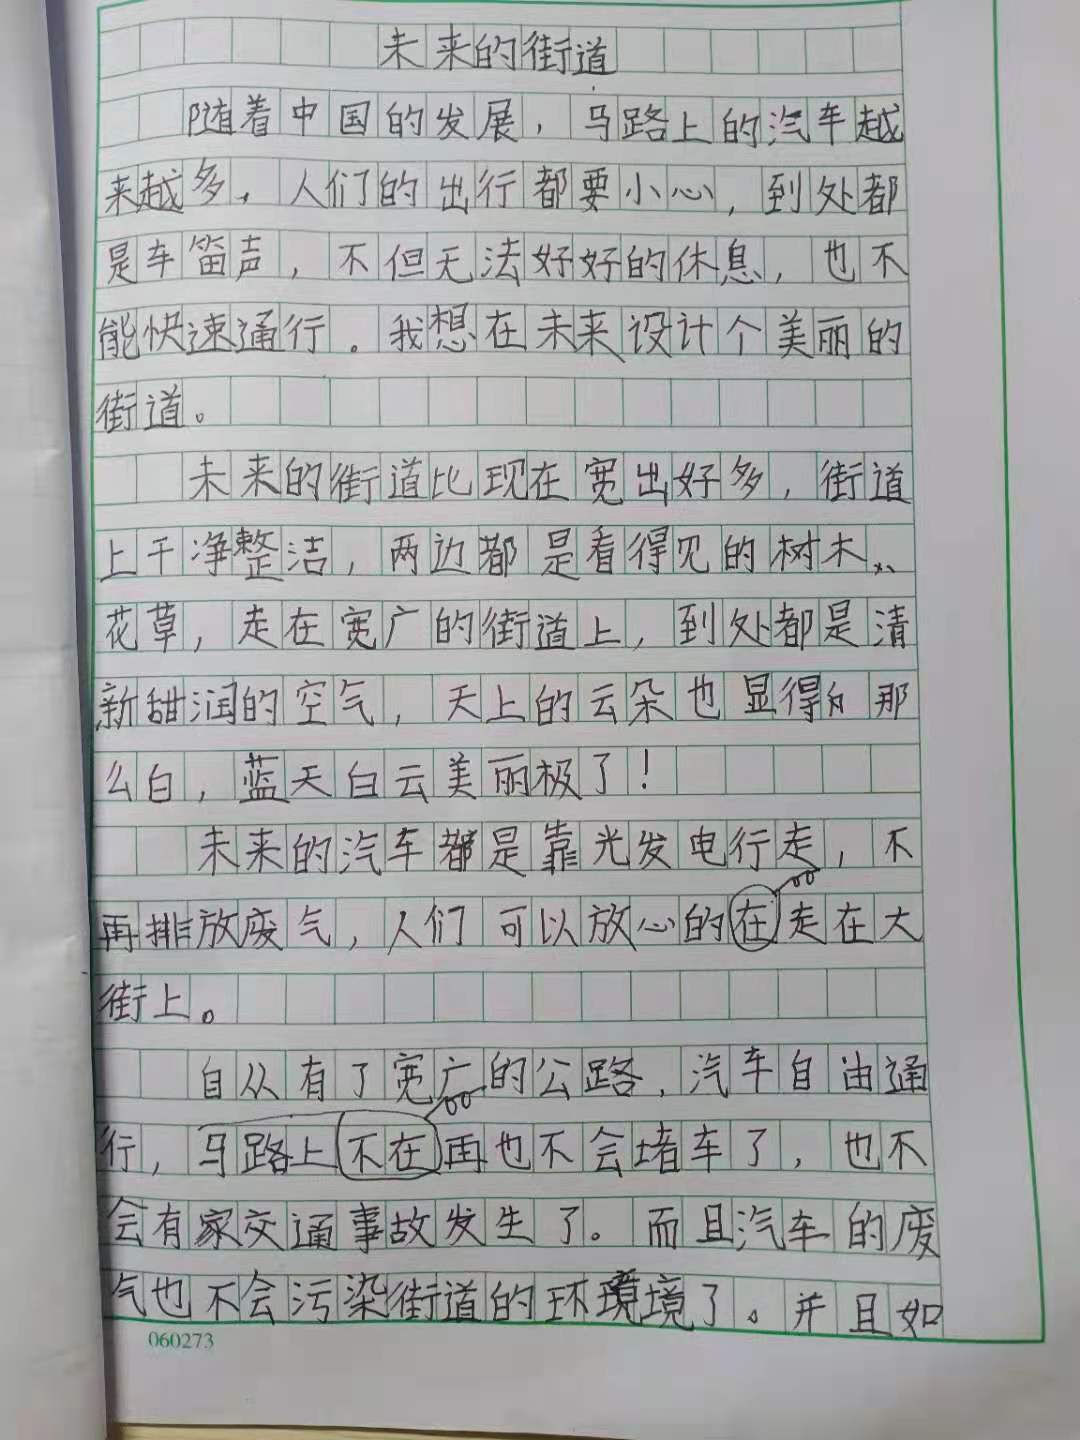 未来的街道
随着中国的发展，马路上的汽车越
来越多，人们的出行都要小心，到处都
是车笛声，不但无法好好的休息，也不
能快速通行。我想在未来设计个美丽的
街道。
未来的街道比现在宽出好多，街道
上干净整洁，两边都是看得见的树木、
花草，走在宽广的街道上，到处都是清
新甜润的空气，天上的云朵也显得那
么白，蓝天白云美丽极了！
未来的汽车都是靠光发电行走，不
再排放废气，人们可以放心的在走在大
街上。
自从有了宽广的公路，汽车自由通
行，马路上不在再也不会堵车了，也不
会有家交通事故发生了。而且汽车的废
气也不会污染街道的环境境了。并且如
060273